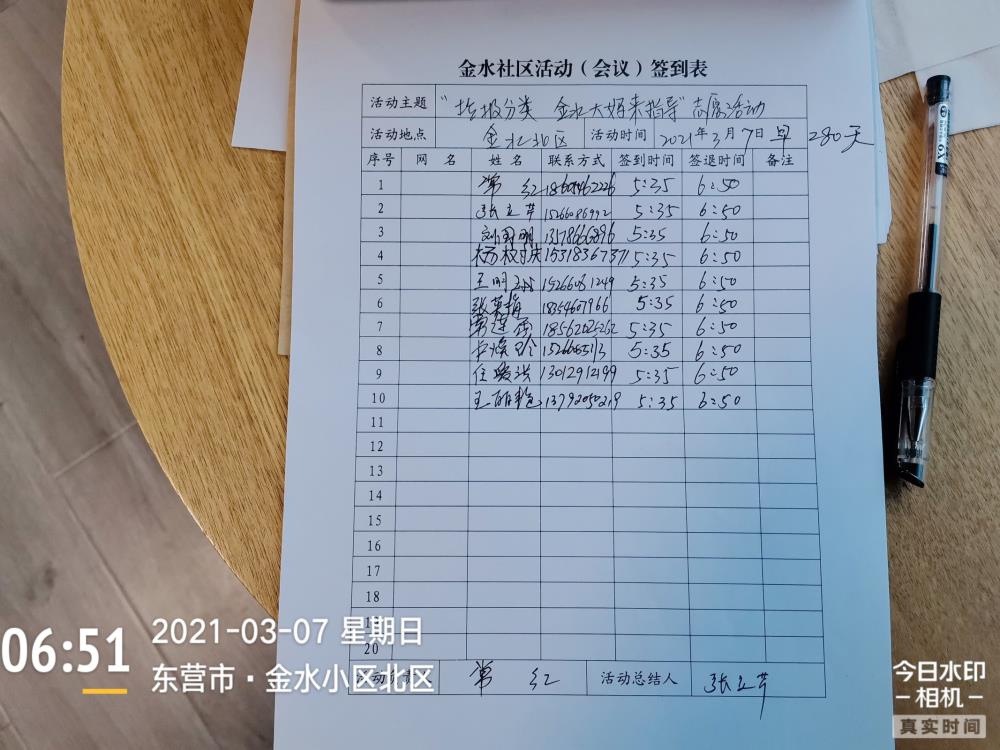 金水社区活动（会议）签到表
活动主题 "垃圾分类 金水大妈来指导"志愿活动
活动地点 金水北区 活动时间 2021年3月7日 早 280天
序号 网 名 姓 名 联系方式 签到时间 签退时间 备注
1 常 红 5:35 6:50
2 张立芹 15266086992 5:35 6:50
3 刘国明 13578666896 5:35 6:50
4 15318367371 5:35 6:50
5 5:35 6:50
6 张英梅 18354607966 5:35 6:50
7 5:35 6:50
8 5:35 6:50
9 任爱洪 13012912199 5:35 6:50
10 王丽艳 13792050219 5:35 6:50
11
12
13
14
15
16
17
18
19
20
常 红 活动总结人 张立芹
06:51
2021-03-07 星期日
东营市·金水小区北区
今日水印
相机
真实时间